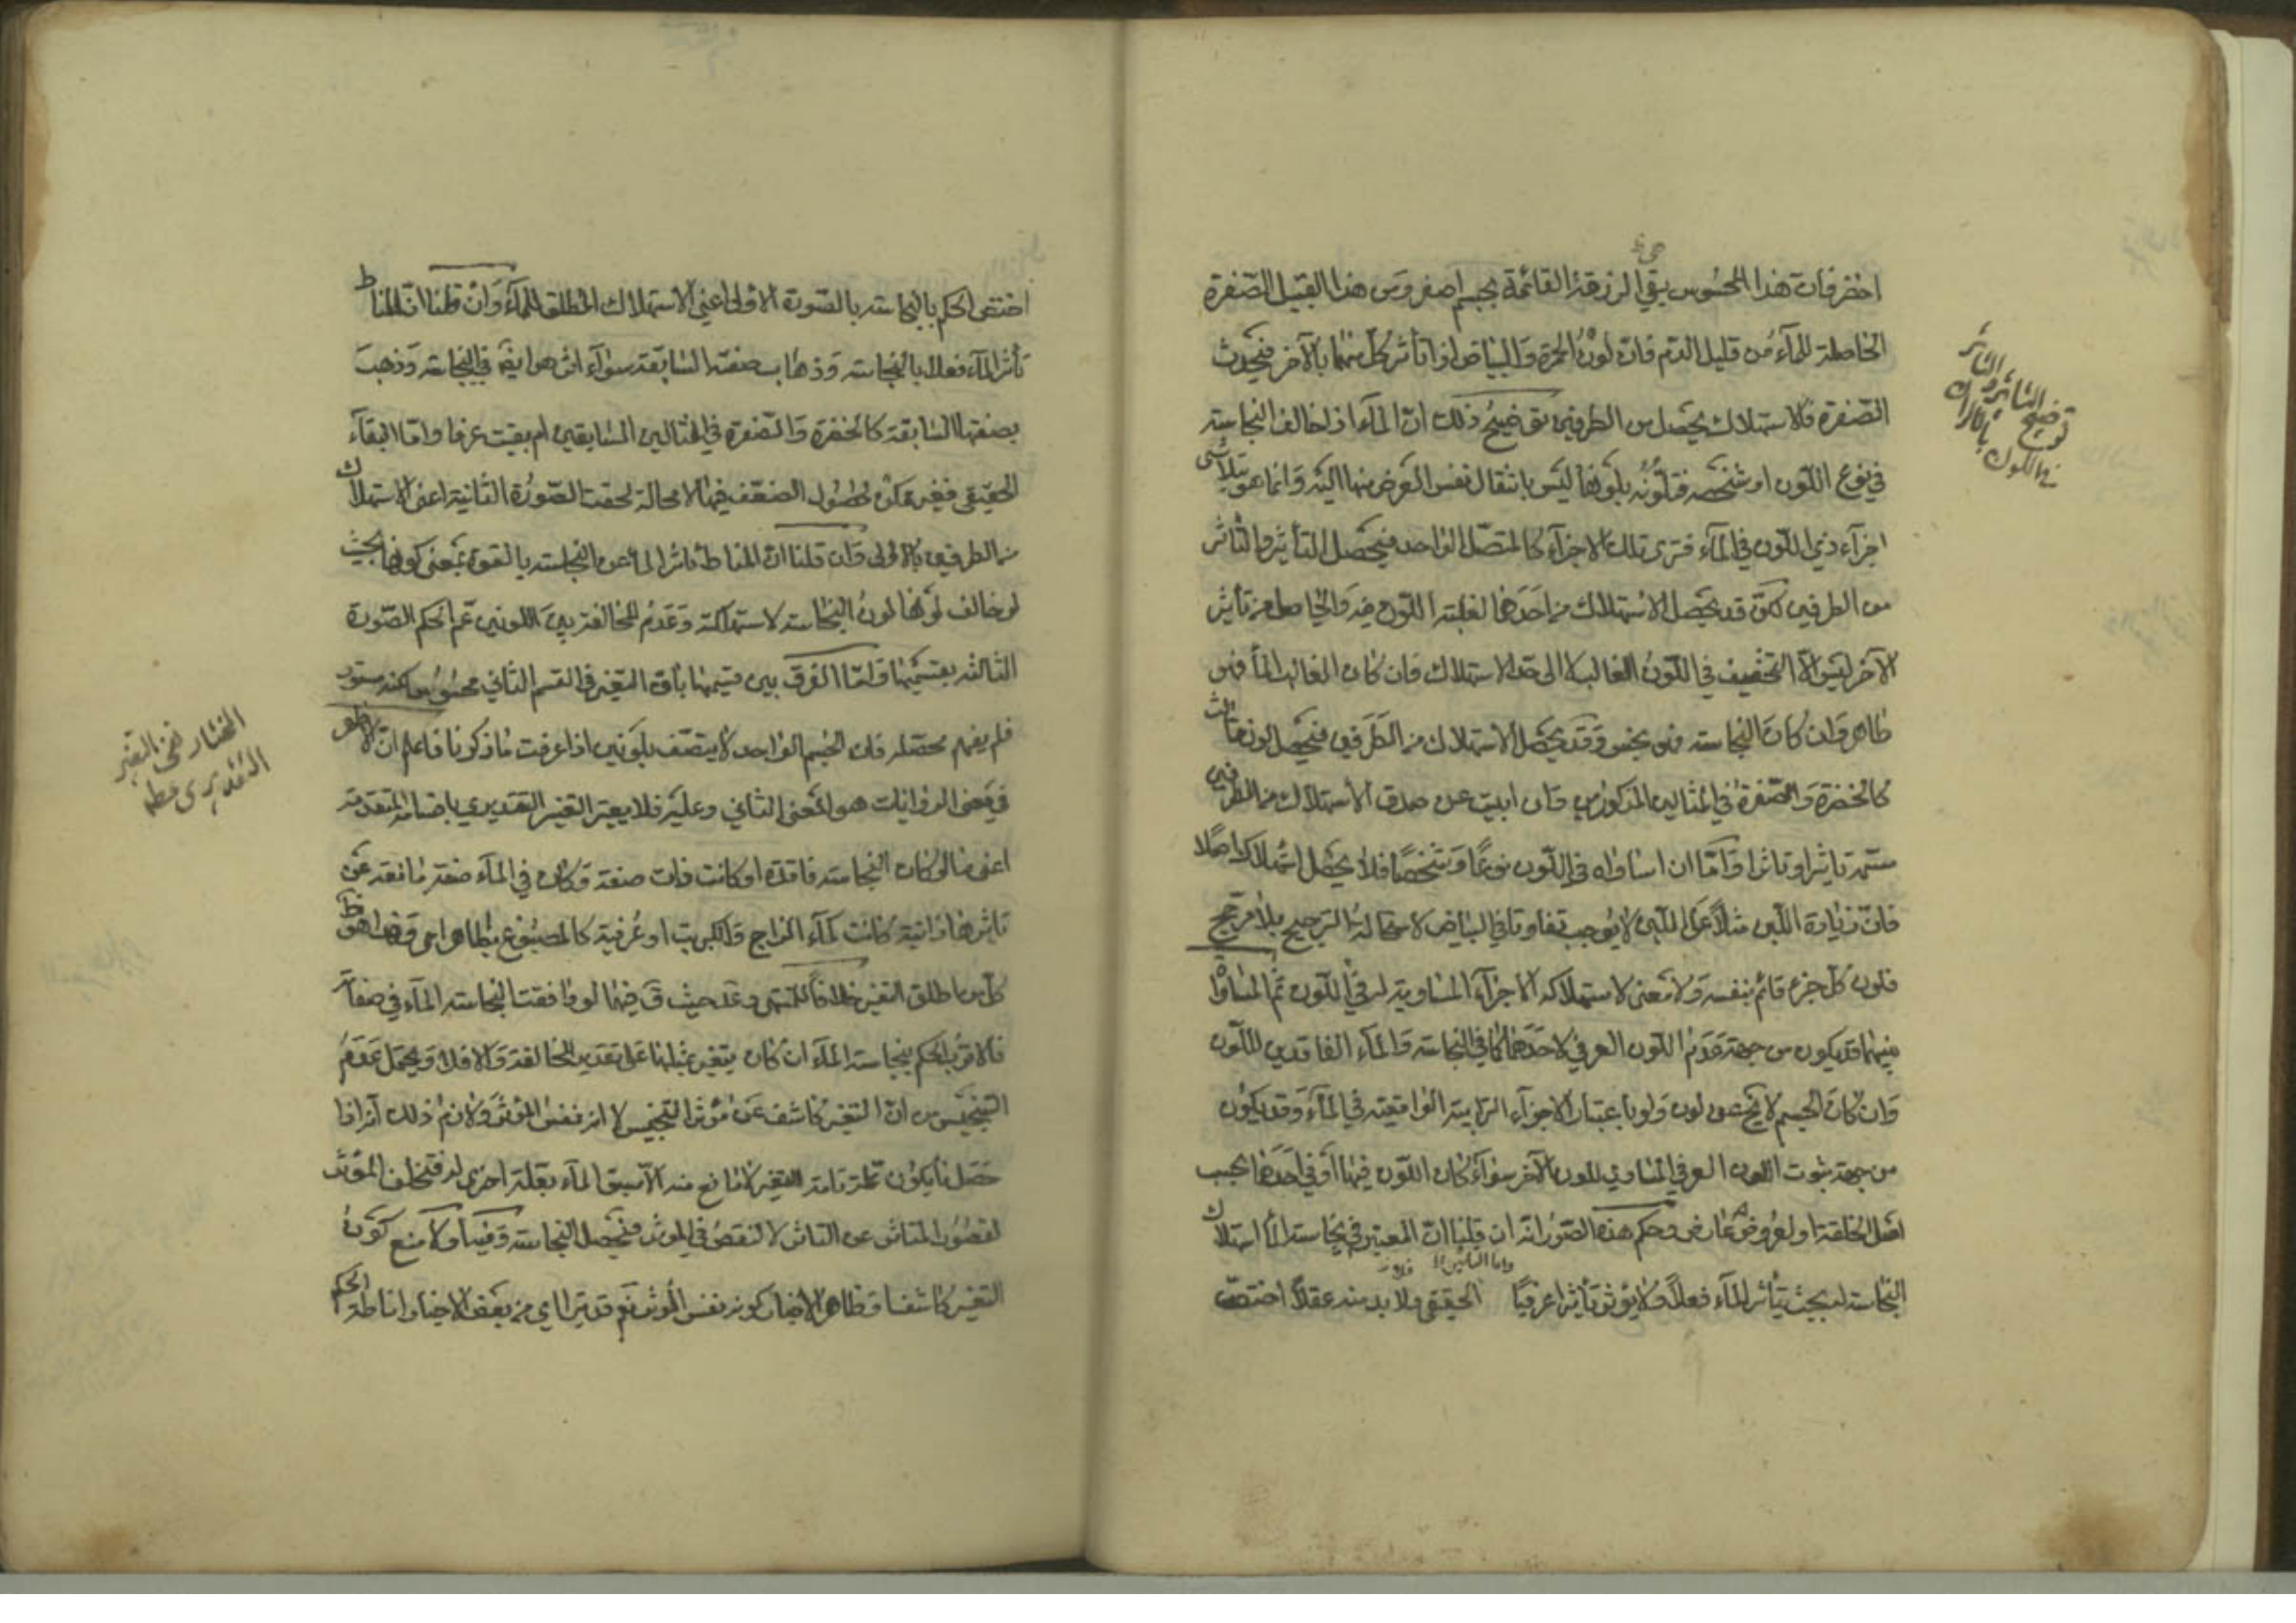 اخضر فان هذا المحسوس بقي الزرقة القائمة بجسم اصفر ومن هذا القبيل الصفرة
الحاصلة للماء من قليل الدم فان لون الحمرة والبياض اذا تأثر كل منهما بالآخر فيحدث
الصفرة فالاستهلاك يحصل من الطرفين توضيح ذلك ان الماء اذا خالف النجاسة
في نوع اللون او شخصه فتلونه بلونها ليس بانتقال نفس العرض منها اليه وانما هو بتلاشي
اجزاء ذي اللون في الماء فترى تلك الاجزاء كالمتصل الواحد فيحصل التأثير والتأثر
من الطرفين لكن قد يحصل الاستهلاك من احدهما لغلبة اللون فيه والحاصل من تأثير
الآخر ليس الا التخفيف في اللون الغالب لا الى حد الاستهلاك فان كان الغالب الماء فهو
طاهر وان كان النجاسة فهو نجس وقد يحصل الاستهلاك من الطرفين فيحصل لون ثالث
كالخضرة والصفرة في المثالين المذكورين وان ابيت عن صدق الاستهلاك من الطرفين
سمه تأثيرا وتأثرا واما ان تساواه في اللون نوعا وشخصا فلا يحصل استهلاك اصلا
فان زيادة اللبن مثلا على اللبن لا يوجب تفاوتا في البياض لاستحالة الترجيح بلا مرجح
فلون كل جزء قائم بنفسه ولا معنى لاستهلاكه الاجزاء المساوية له في اللون ثم المساواة
بينهما قد يكون من جهة عدم اللون العرفي لاحدهما كما في النجاسة والماء الفاقدين للون
وان كان الجسم لا يخ عن لون ولو باعتبار الاجزاء الترابية الواقعية في الماء وقد يكون
من جهة ثبوت اللون العرفي المساوي للون الآخر سواء كان اللون فيهما او في احدهما بحسب
اصل الخلقة او لعروض عارض وحكم هذه الصور انه ان قلنا ان المعتبر في نجاسة الماء استهلاك
النجاسة له بحيث يتأثر الماء فعلا ولا يؤثر تأثيرا عرفيا الحقيقي ولا بد منه عقلا اختص
توضيح التأثير والتأثر
في اللون
اختص الحكم بالنجاسة بالصورة الاولى اعني الاستهلاك المطلق للماء وان قلنا ان المناط
تأثر الماء فعلا بالنجاسة وذهاب صفته السابقة سواء اثر هو ايضا في النجاسة وذهب
بصفتها السابقة كالخضرة والصفرة في المثالين السابقين ام بقيت عرفا واما البقاء
الحقيقي فغير ممكن لحصول الضعف فيها لا محالة لحقت الصورة الثانية اعني الاستهلاك
من الطرفين بالاولى وان قلنا ان المناط تأثر الماء عن النجاسة بالقوة بمعنى كونها بحيث
لو خالف لونها لون النجاسة لاستهلكته وعدم المخالفة بين اللونين عم الحكم الصورة
الثالثة بقسميها واما الفرق بين قسميها بان التغير في القسم الثاني محسوس لكنه مستور
فلم يفهم محصله فان الجسم الواحد لا يتصف بلونين اذا عرفت ما ذكرنا فاعلم ان الاظهر
في معنى الروايات هو المعنى الثاني وعليه فلا يعتبر التغير التقديري باقسامه المتقدمة
اعني ما لو كان النجاسة فاقدة او كانت ذات صفة وكان في الماء صفة مانعة عن
تأثرها ذاتية كانت كماء الزاج والكبريت او عرضية كالمصبوغ بطاهر احمر وهذا هو ظ
كل من اطلق التغير خلافا للمنتهى وعد حيث ق فيما لو وافقت النجاسة الماء في صفاته
فالاقرب الحكم بنجاسة الماء ان كان يتغير بمثلها على تقدير المخالفة والا فلا ويحتمل عدم
التنجيس من ان التغير كاشف عن مؤثر التنجيس لا انه نفس المؤثر ولازم ذلك انه اذا
حصل ما يكون علة تامة للتغير لا مانع منه الا سبق الماء بعلة اخرى له فتخلف المؤثر
لقصور المتأثر عن التأثر لا لنقص في المؤثر فيحصل النجاسة وفيه اولا منع كون
التغير كاشفا وظاهر الاخبار كونه نفس المؤثر نعم قد يتراءى من بعض الاخبار اناطة الحكم
المختار نفي التغير
التقديري مط